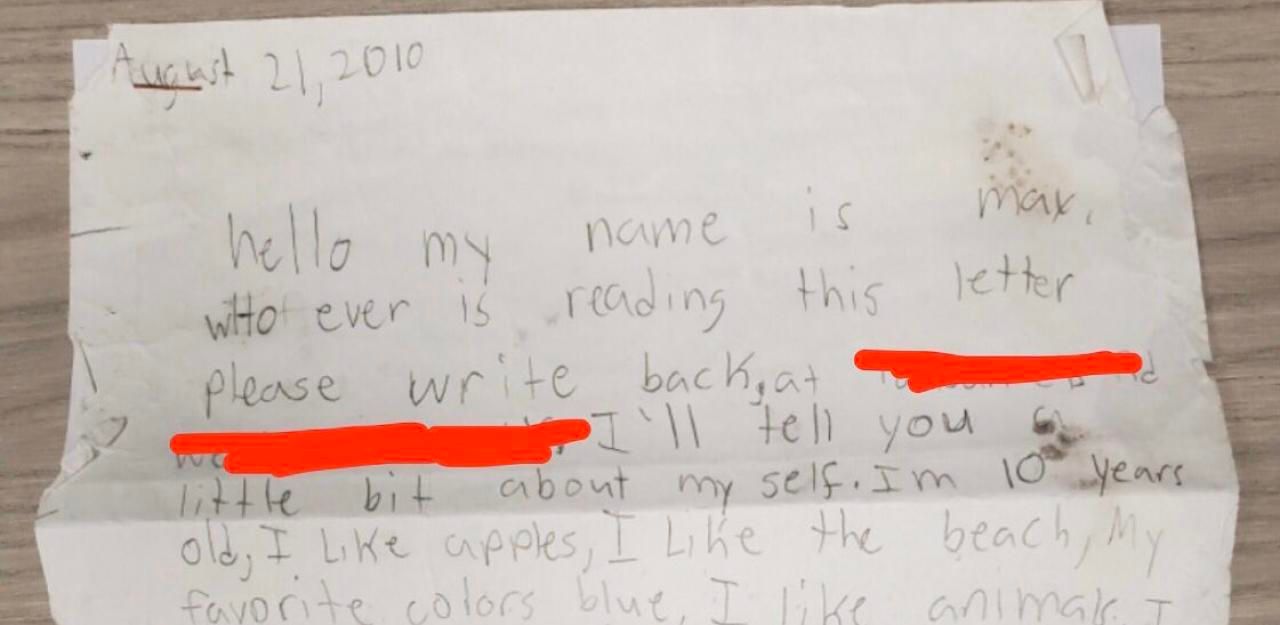 August 21, 2010
hello my name is max.
whoever is reading this letter
please write back, at
I'll tell you a
little bit about my self. Im 10 years
old, I Like apples, I Like the beach, My
favorite colors blue, I like animals. I